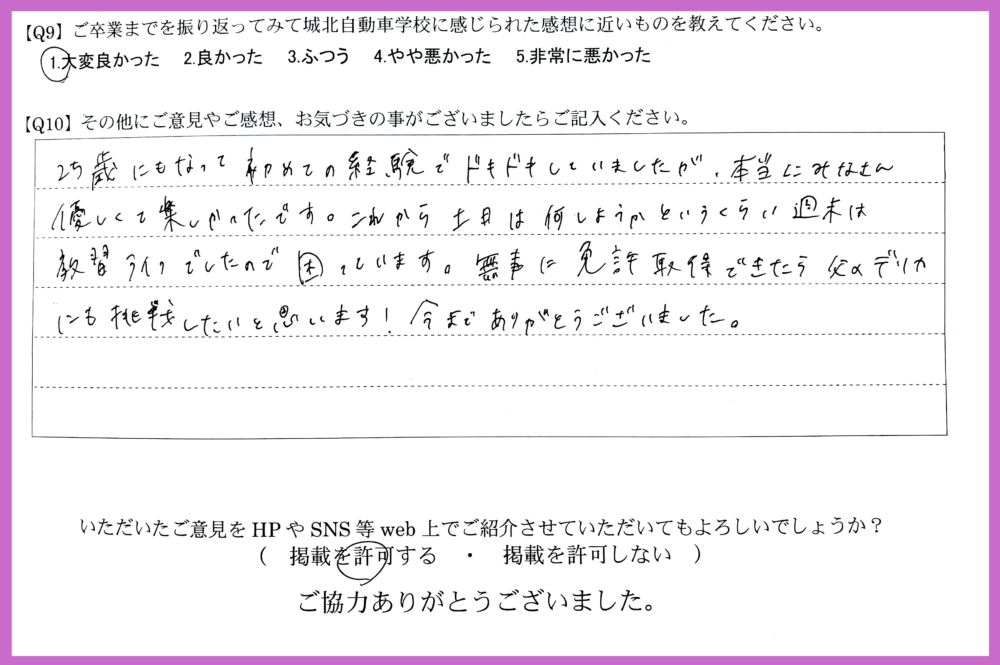 【Q9】ご卒業までを振り返ってみて城北自動車学校に感じられた感想に近いものを教えてください。
1.大変良かった 2.良かった 3.ふつう 4.やや悪かった 5.非常に悪かった
【Q10】その他にご意見やご感想、お気づきの事がございましたらご記入ください。
25歳にもなって初めての経験でドキドキしていましたが、本当にみなさん
優しくて楽しかったです。これから土日は何しようかというくらい週末は
教習ライフでしたので困っています。無事に免許取得できたら父のデリカ
にも挑戦したいと思います!今までありがとうございました。
いただいたご意見をHPやSNS等web上でご紹介させていただいてもよろしいでしょうか？
( 掲載を許可する ・ 掲載を許可しない )
ご協力ありがとうございました。